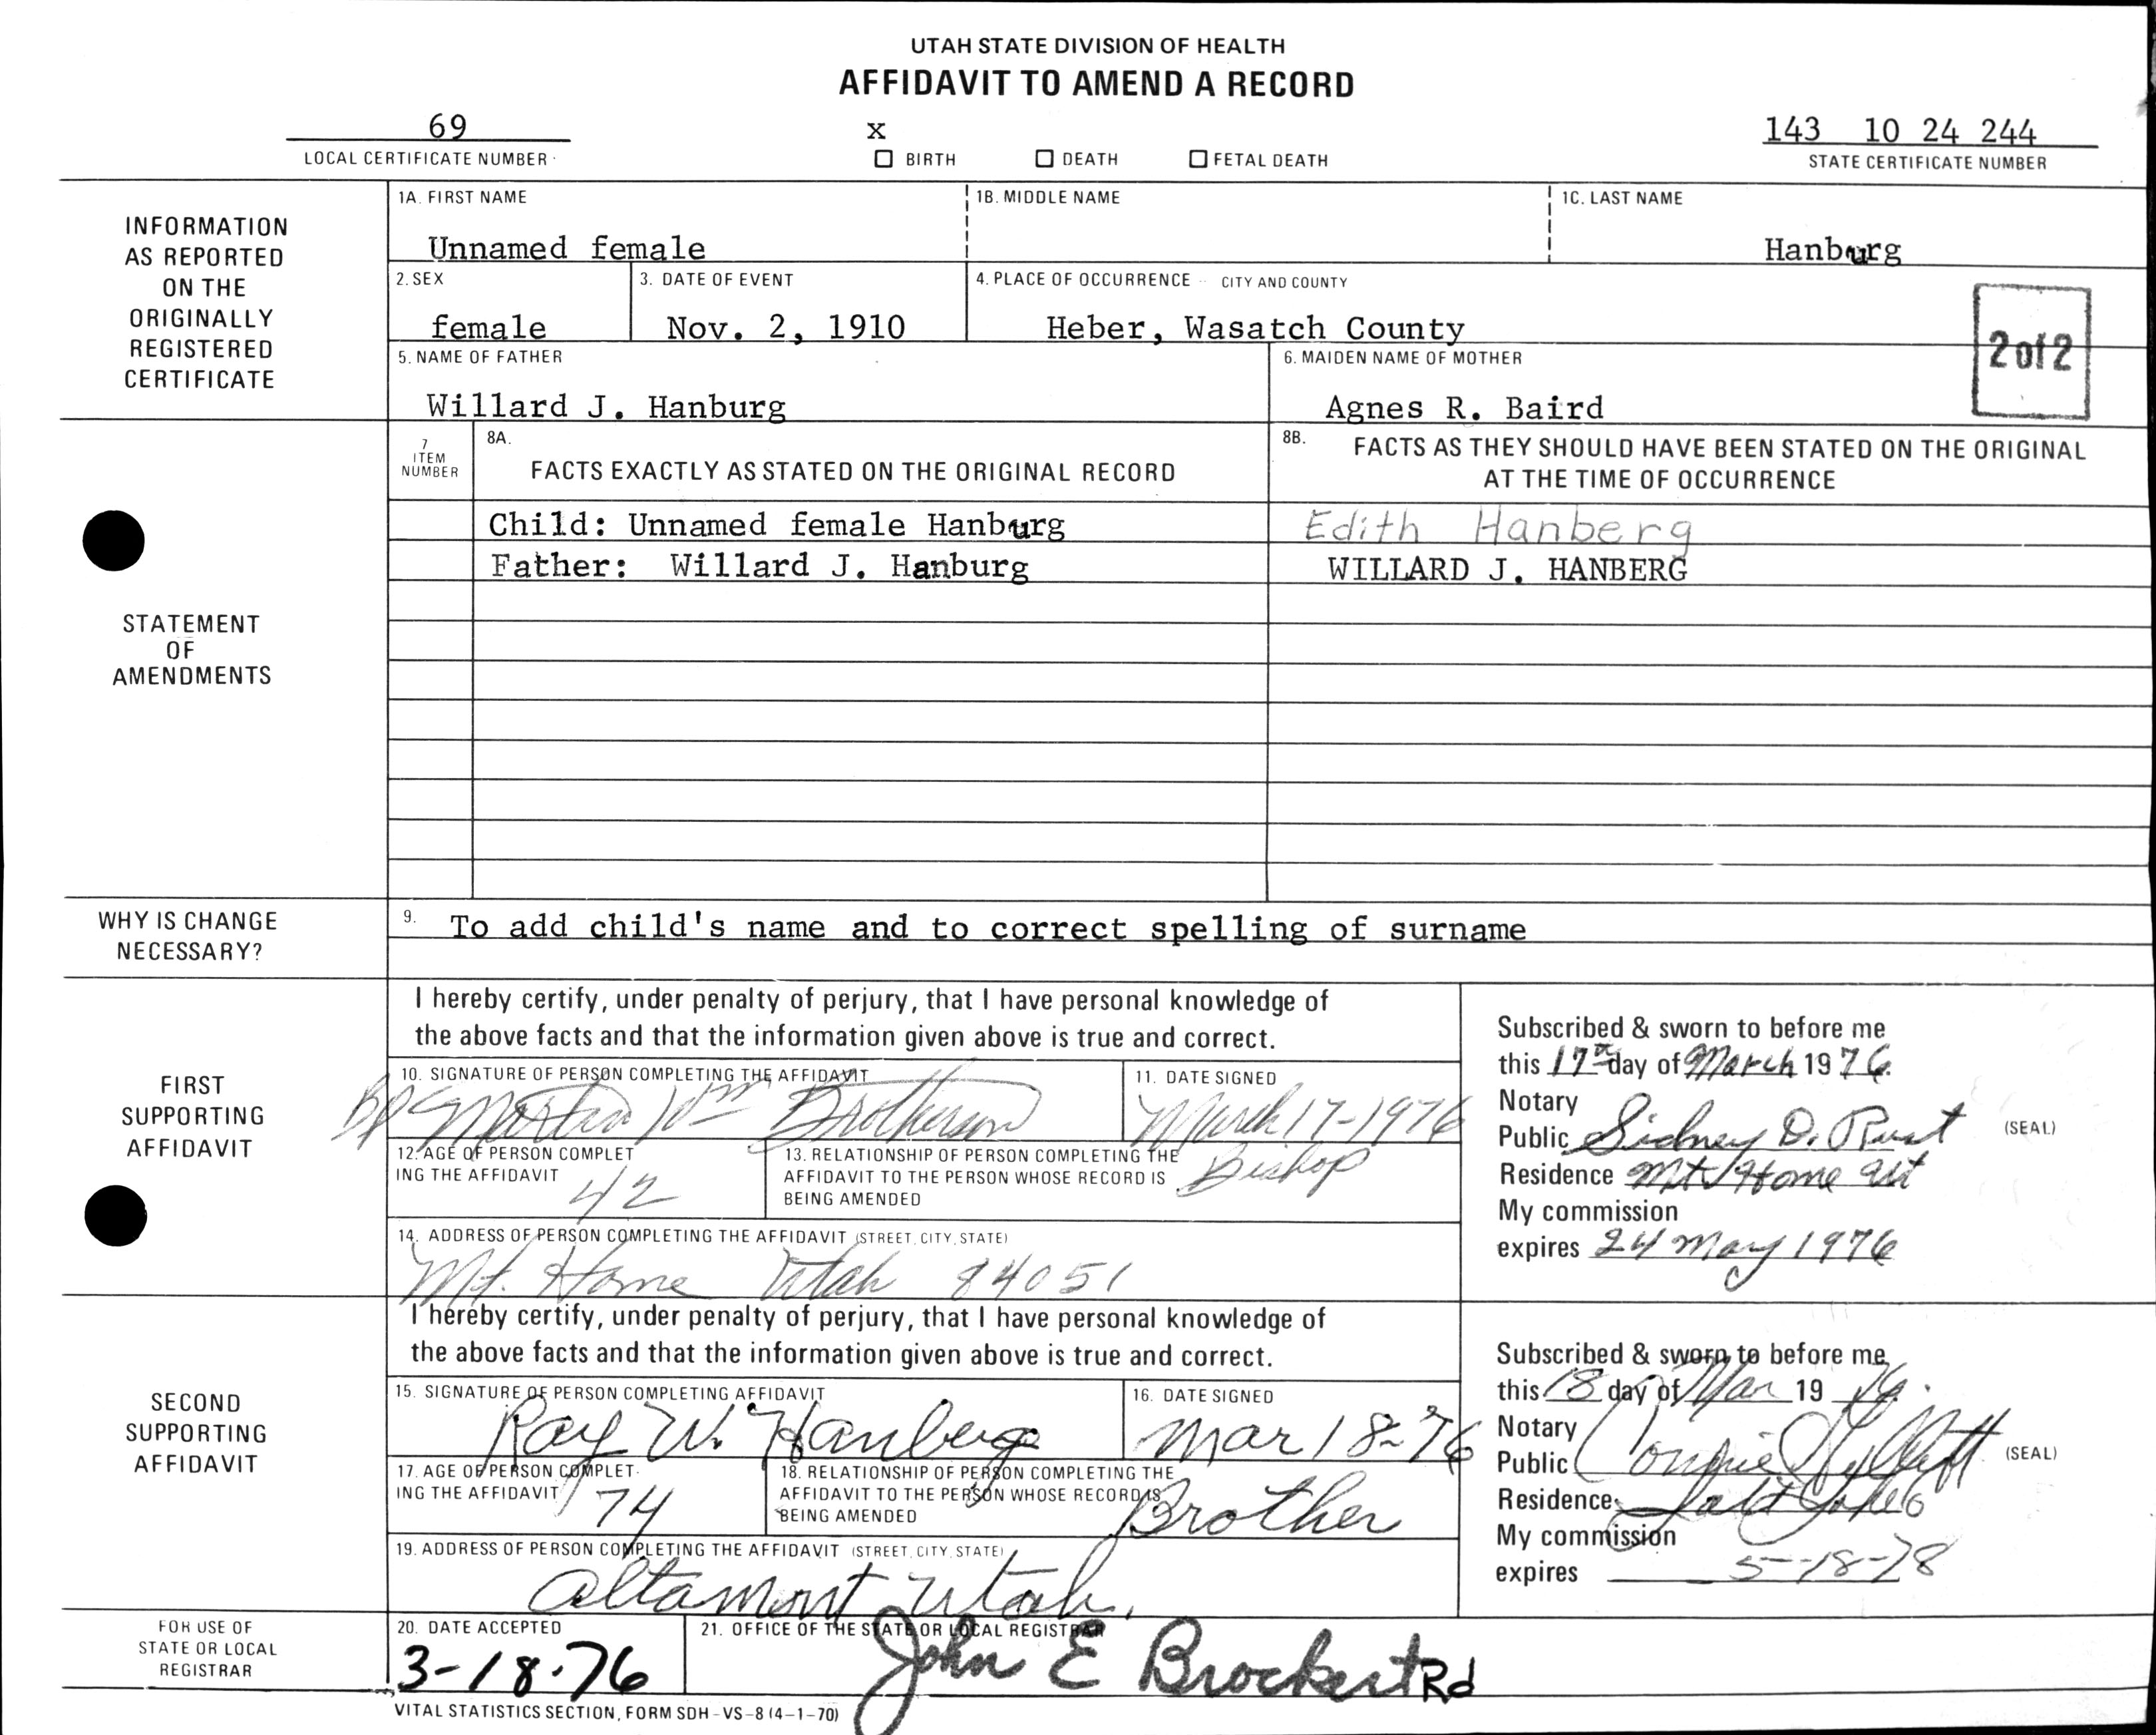 UTAH STATE DIVISION OF HEALTH
AFFIDAVIT TO AMEND A RECORD
69
LOCAL CERTIFICATE NUMBER
x
☐ BIRTH ☐ DEATH ☐ FETAL DEATH
143 10 24 244
STATE CERTIFICATE NUMBER
INFORMATION
AS REPORTED
ON THE
ORIGINALLY
REGISTERED
CERTIFICATE
1A. FIRST NAME
Unnamed female
1B. MIDDLE NAME
1C. LAST NAME
Hanburg
2. SEX
female
3. DATE OF EVENT
Nov. 2, 1910
4. PLACE OF OCCURRENCE CITY AND COUNTY
Heber, Wasatch County
2 of 2
5. NAME OF FATHER
Willard J. Hanburg
6. MAIDEN NAME OF MOTHER
Agnes R. Baird
STATEMENT
OF
AMENDMENTS
7
ITEM
NUMBER
8A.
FACTS EXACTLY AS STATED ON THE ORIGINAL RECORD
8B. FACTS AS THEY SHOULD HAVE BEEN STATED ON THE ORIGINAL
AT THE TIME OF OCCURRENCE
Child: Unnamed female Hanburg
Edith Hanberg
Father: Willard J. Hanburg
WILLARD J. HANBERG
WHY IS CHANGE
NECESSARY?
9. To add child's name and to correct spelling of surname
FIRST
SUPPORTING
AFFIDAVIT
I hereby certify, under penalty of perjury, that I have personal knowledge of
the above facts and that the information given above is true and correct.
10. SIGNATURE OF PERSON COMPLETING THE AFFIDAVIT
Bp Martin Wm Brotherson
11. DATE SIGNED
March 17-1976
12. AGE OF PERSON COMPLET
ING THE AFFIDAVIT
42
13. RELATIONSHIP OF PERSON COMPLETING THE
AFFIDAVIT TO THE PERSON WHOSE RECORD IS
BEING AMENDED
Bishop
14. ADDRESS OF PERSON COMPLETING THE AFFIDAVIT (STREET, CITY, STATE)
Mt. Home Utah 84051
Subscribed & sworn to before me
this 17th day of March 1976.
Notary
Public Sidney D. Rust (SEAL)
Residence Mt Home Ut
My commission
expires 24 May 1976
SECOND
SUPPORTING
AFFIDAVIT
I hereby certify, under penalty of perjury, that I have personal knowledge of
the above facts and that the information given above is true and correct.
15. SIGNATURE OF PERSON COMPLETING AFFIDAVIT
Ray W. Hanberg
16. DATE SIGNED
Mar 18-76
17. AGE OF PERSON COMPLET-
ING THE AFFIDAVIT
74
18. RELATIONSHIP OF PERSON COMPLETING THE
AFFIDAVIT TO THE PERSON WHOSE RECORD IS
BEING AMENDED
Brother
19. ADDRESS OF PERSON COMPLETING THE AFFIDAVIT (STREET, CITY, STATE)
Altamont Utah.
Subscribed & sworn to before me
this 18 day of Mar 19 76.
Notary
Public Connie (SEAL)
Residence Salt Lake
My commission
expires 5-18-78
FOR USE OF
STATE OR LOCAL
REGISTRAR
20. DATE ACCEPTED
3-18-76
21. OFFICE OF THE STATE OR LOCAL REGISTRAR
John E Brockert Rd
VITAL STATISTICS SECTION, FORM SDH-VS-8 (4-1-70)